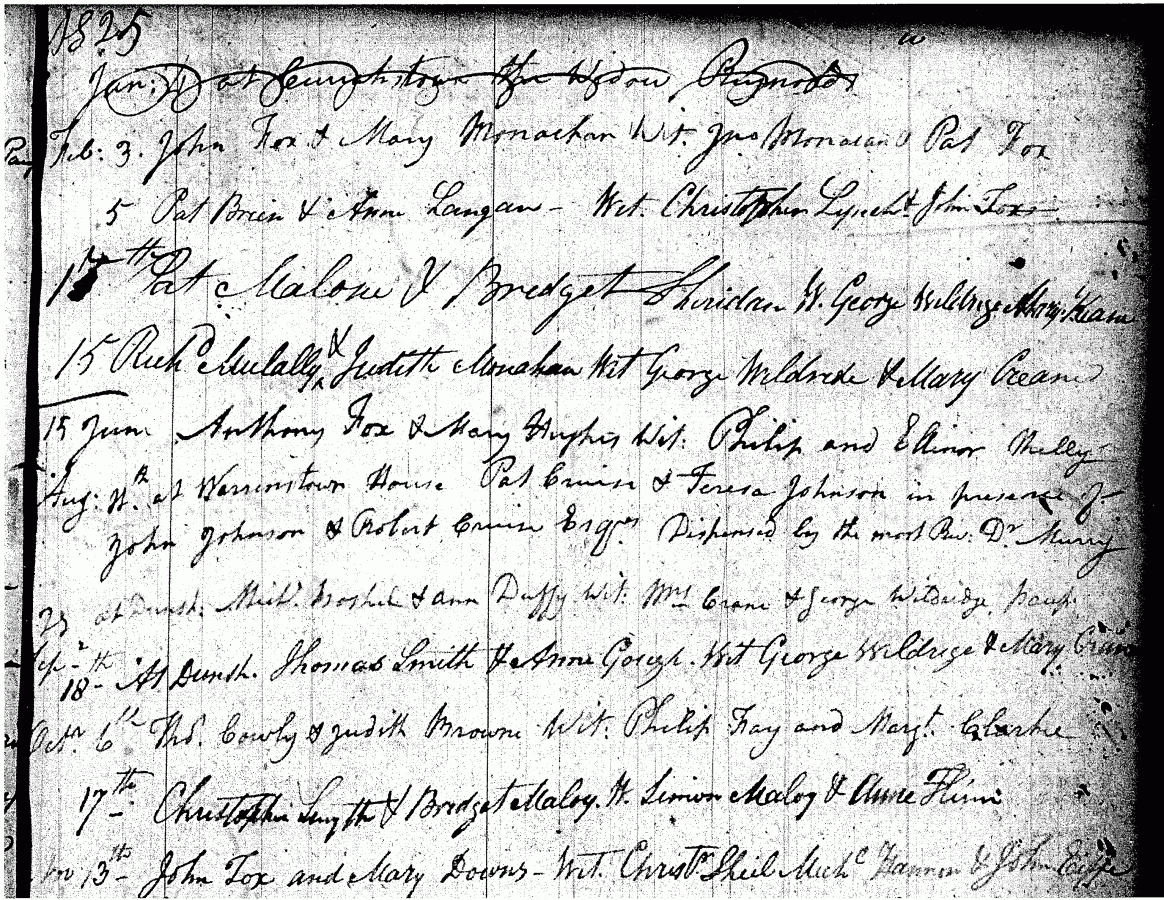 1825
Jan: 4 at Curraghstown The Widow Reynolds
Feb: 3. John Fox & Mary Monachan Wit. Jno Monacan & Pat Fox
5 Pat Brien & Anne Langan - Wit. Christopher Lynch & John Fox
15th Pat Malone & Bridget Sheridan W. George Wildrige & Mary
15 Richd Mulally & Judith Monahan Wit George Wildride & Mary Crean
15 June Anthony Fox & Mary Hughes Wit. Philip and Ellinor Melly
Aug: at Warrinstown House Pat Cruise & Teresa Johnson in presence of
John Johnson & Robert Cruise Esqrs Dispensed by the most Rev: Dr Murry
23 at Dunsh. Michl. & Ann Duffy Wit. Mrs Crane & George Wildridge
Sep- 18th At Dunsh. Thomas Smith & Anne Gough. Wit George Wildrige & Mary
Octr. 6th Ths. Cowly & Judith Browne Wit. Philip Fay and Margt. Clarke
17th- Christophir Smyth & Bridget Maloy. W. Simon Maloy & Anne Flinn
13th- John Fox and Mary Downs - Wit. Christr Sheil Michl Hannon & John